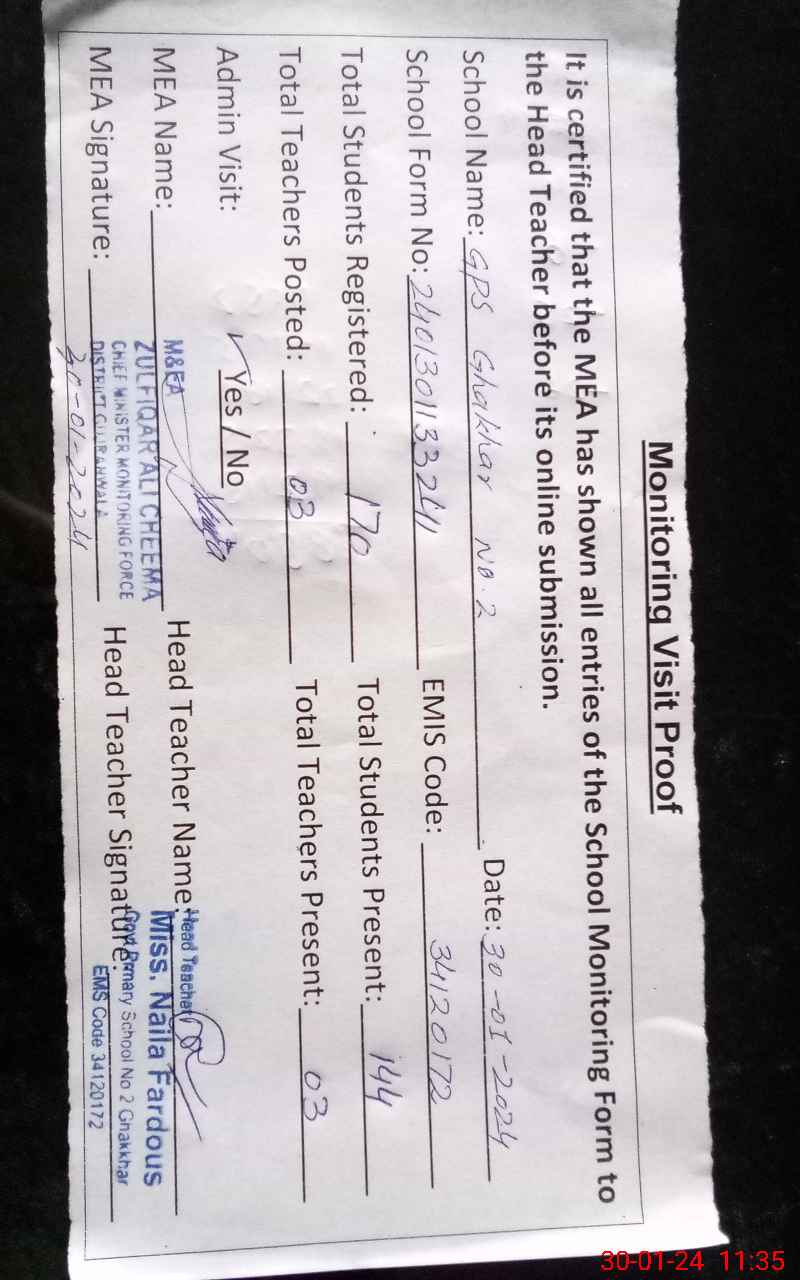 Monitoring Visit Proof
It is certified that the MEA has shown all entries of the School Monitoring Form to
the Head Teacher before its online submission.
School Name: GPS Ghakhar No. 2 Date: 30-01-2024
School Form No: 2401301133241 EMIS Code: 34120172
Total Students Registered: 170 Total Students Present: 144
Total Teachers Posted: 03 Total Teachers Present: 03
Admin Visit: ✓ Yes / No
MEA Name: M&EA ZULFIQAR ALI CHEEMA Head Teacher Name: Head Teacher Miss. Naila Fardous
CHIEF MINISTER MONITORING FORCE
MEA Signature: DISTRICT GUJRANWALA Head Teacher Signature: Govt Primary School No 2 Ghakkhar
30-01-2024 EMS Code 34120172
30-01-24 11:35